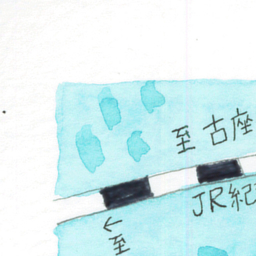 至古座
JR紀
←
至